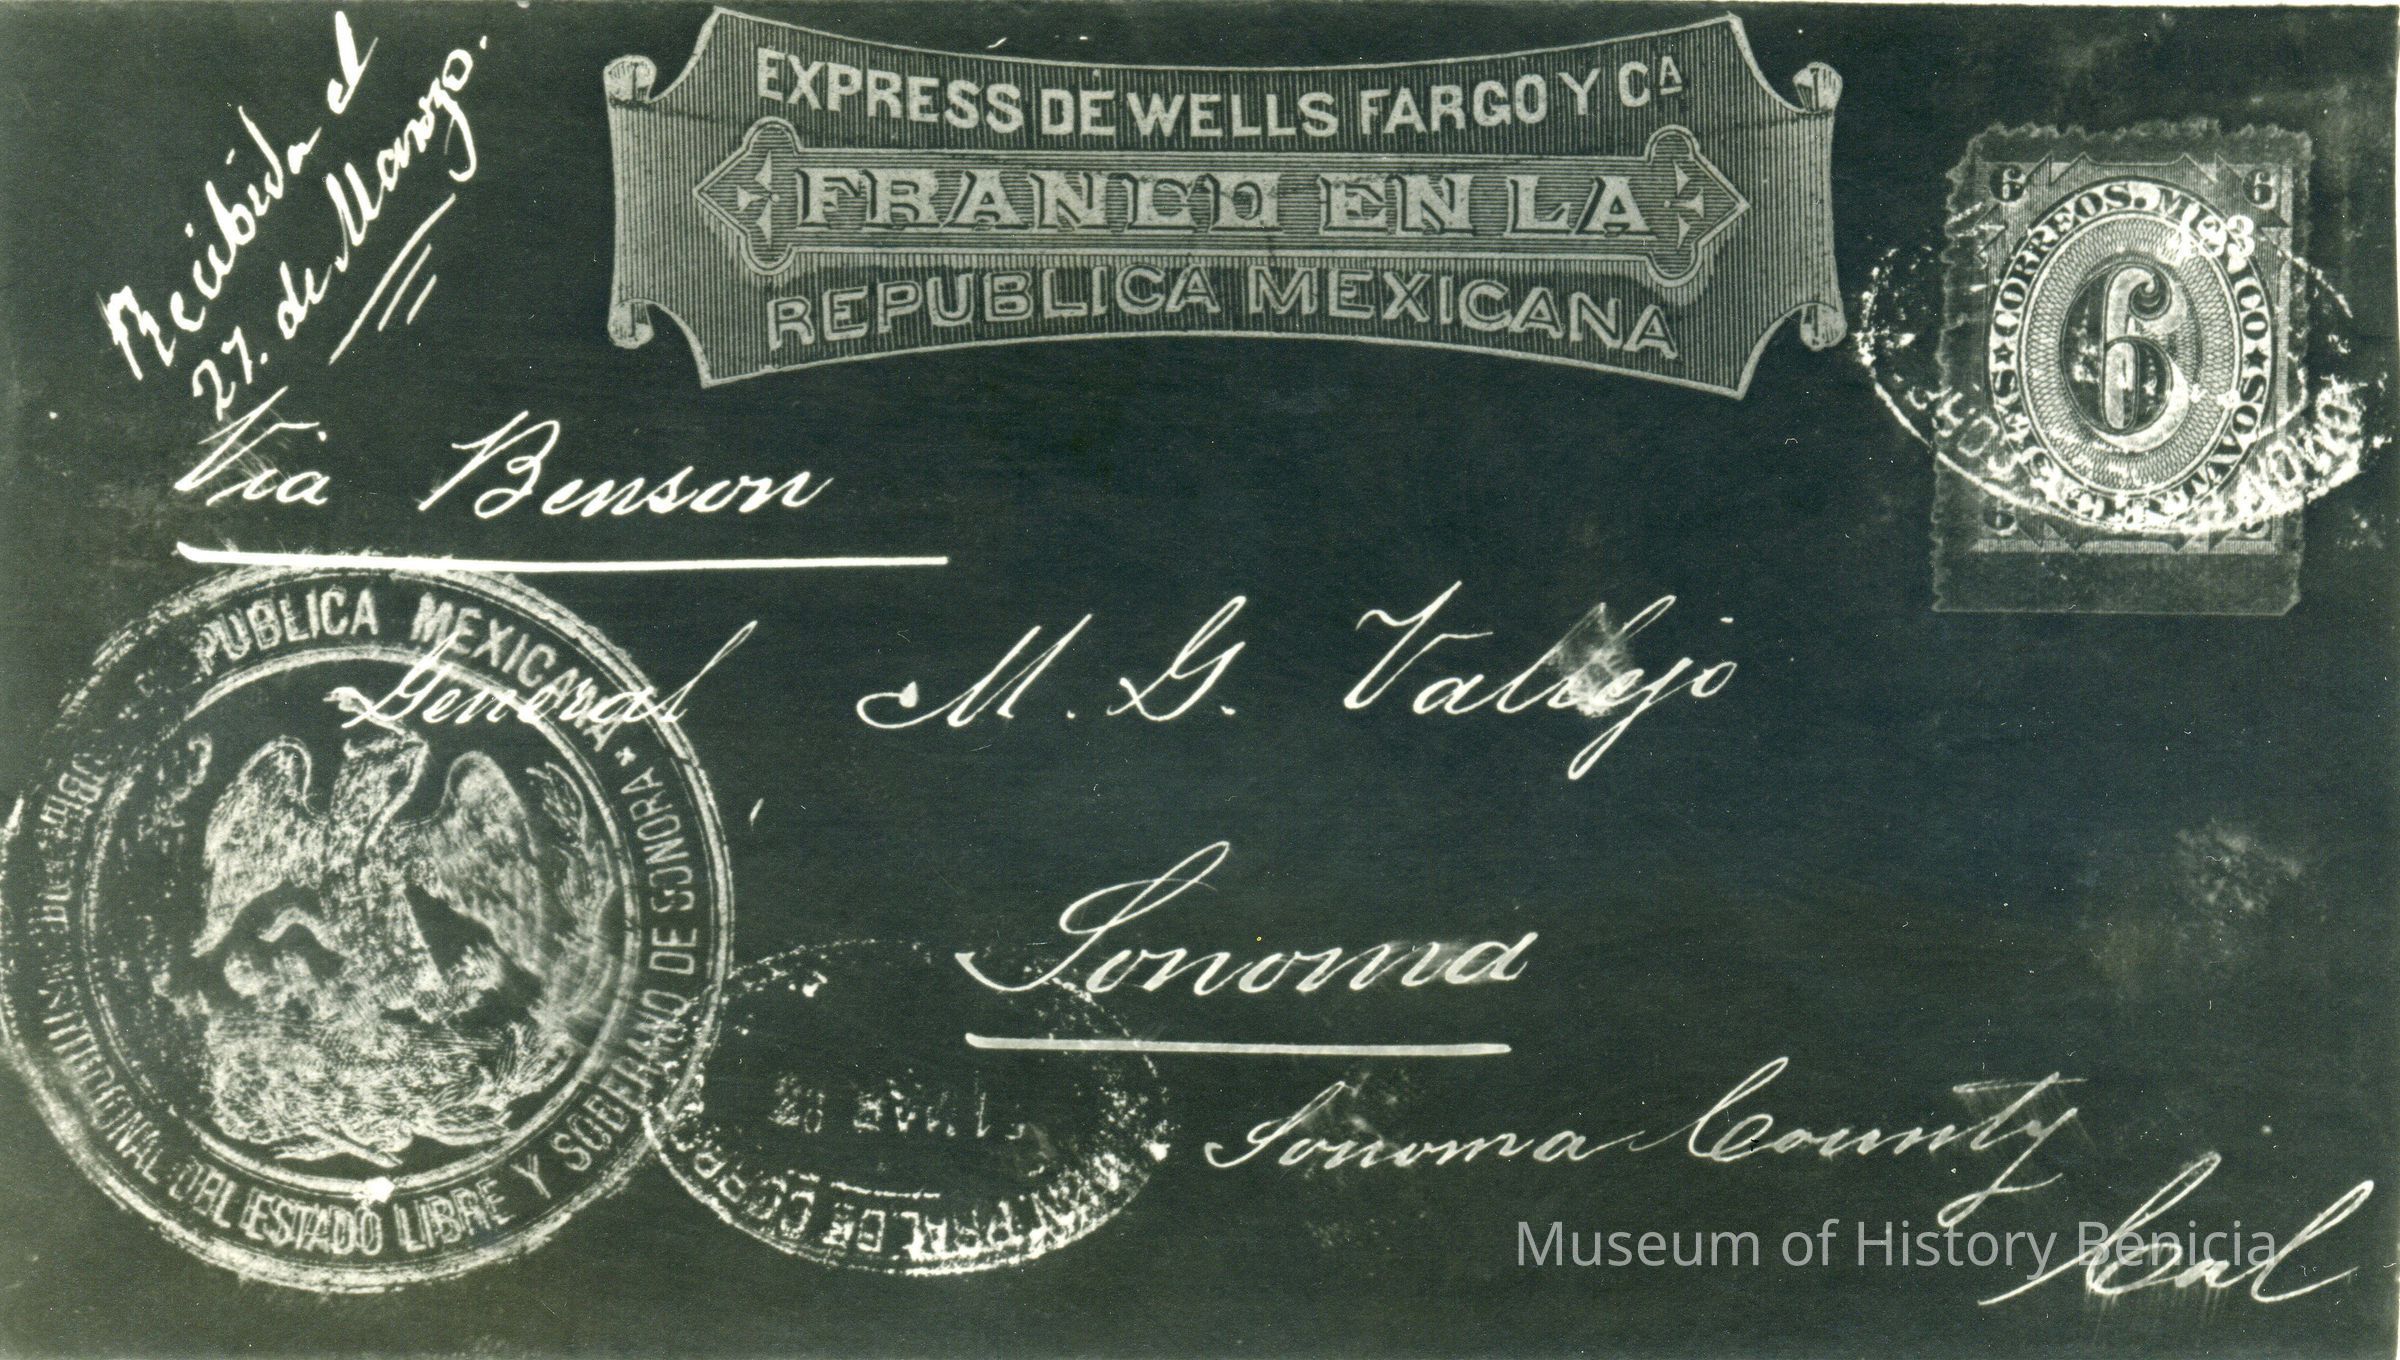 Recibida el
27. de Marzo.
EXPRESS DE WELLS FARGO Y CA
FRANCO EN LA
REPUBLICA MEXICANA
6 6
CORREOS MEXICO
6
CENTAVOS
Via Benson
General M. G. Vallejo
Sonoma
Sonoma County
Cal
PUBLICA MEXICANA
DEL ESTADO LIBRE Y SOBERANO DE SONORA
MAR
PRAL DE CORREOS
Museum of History Benicia